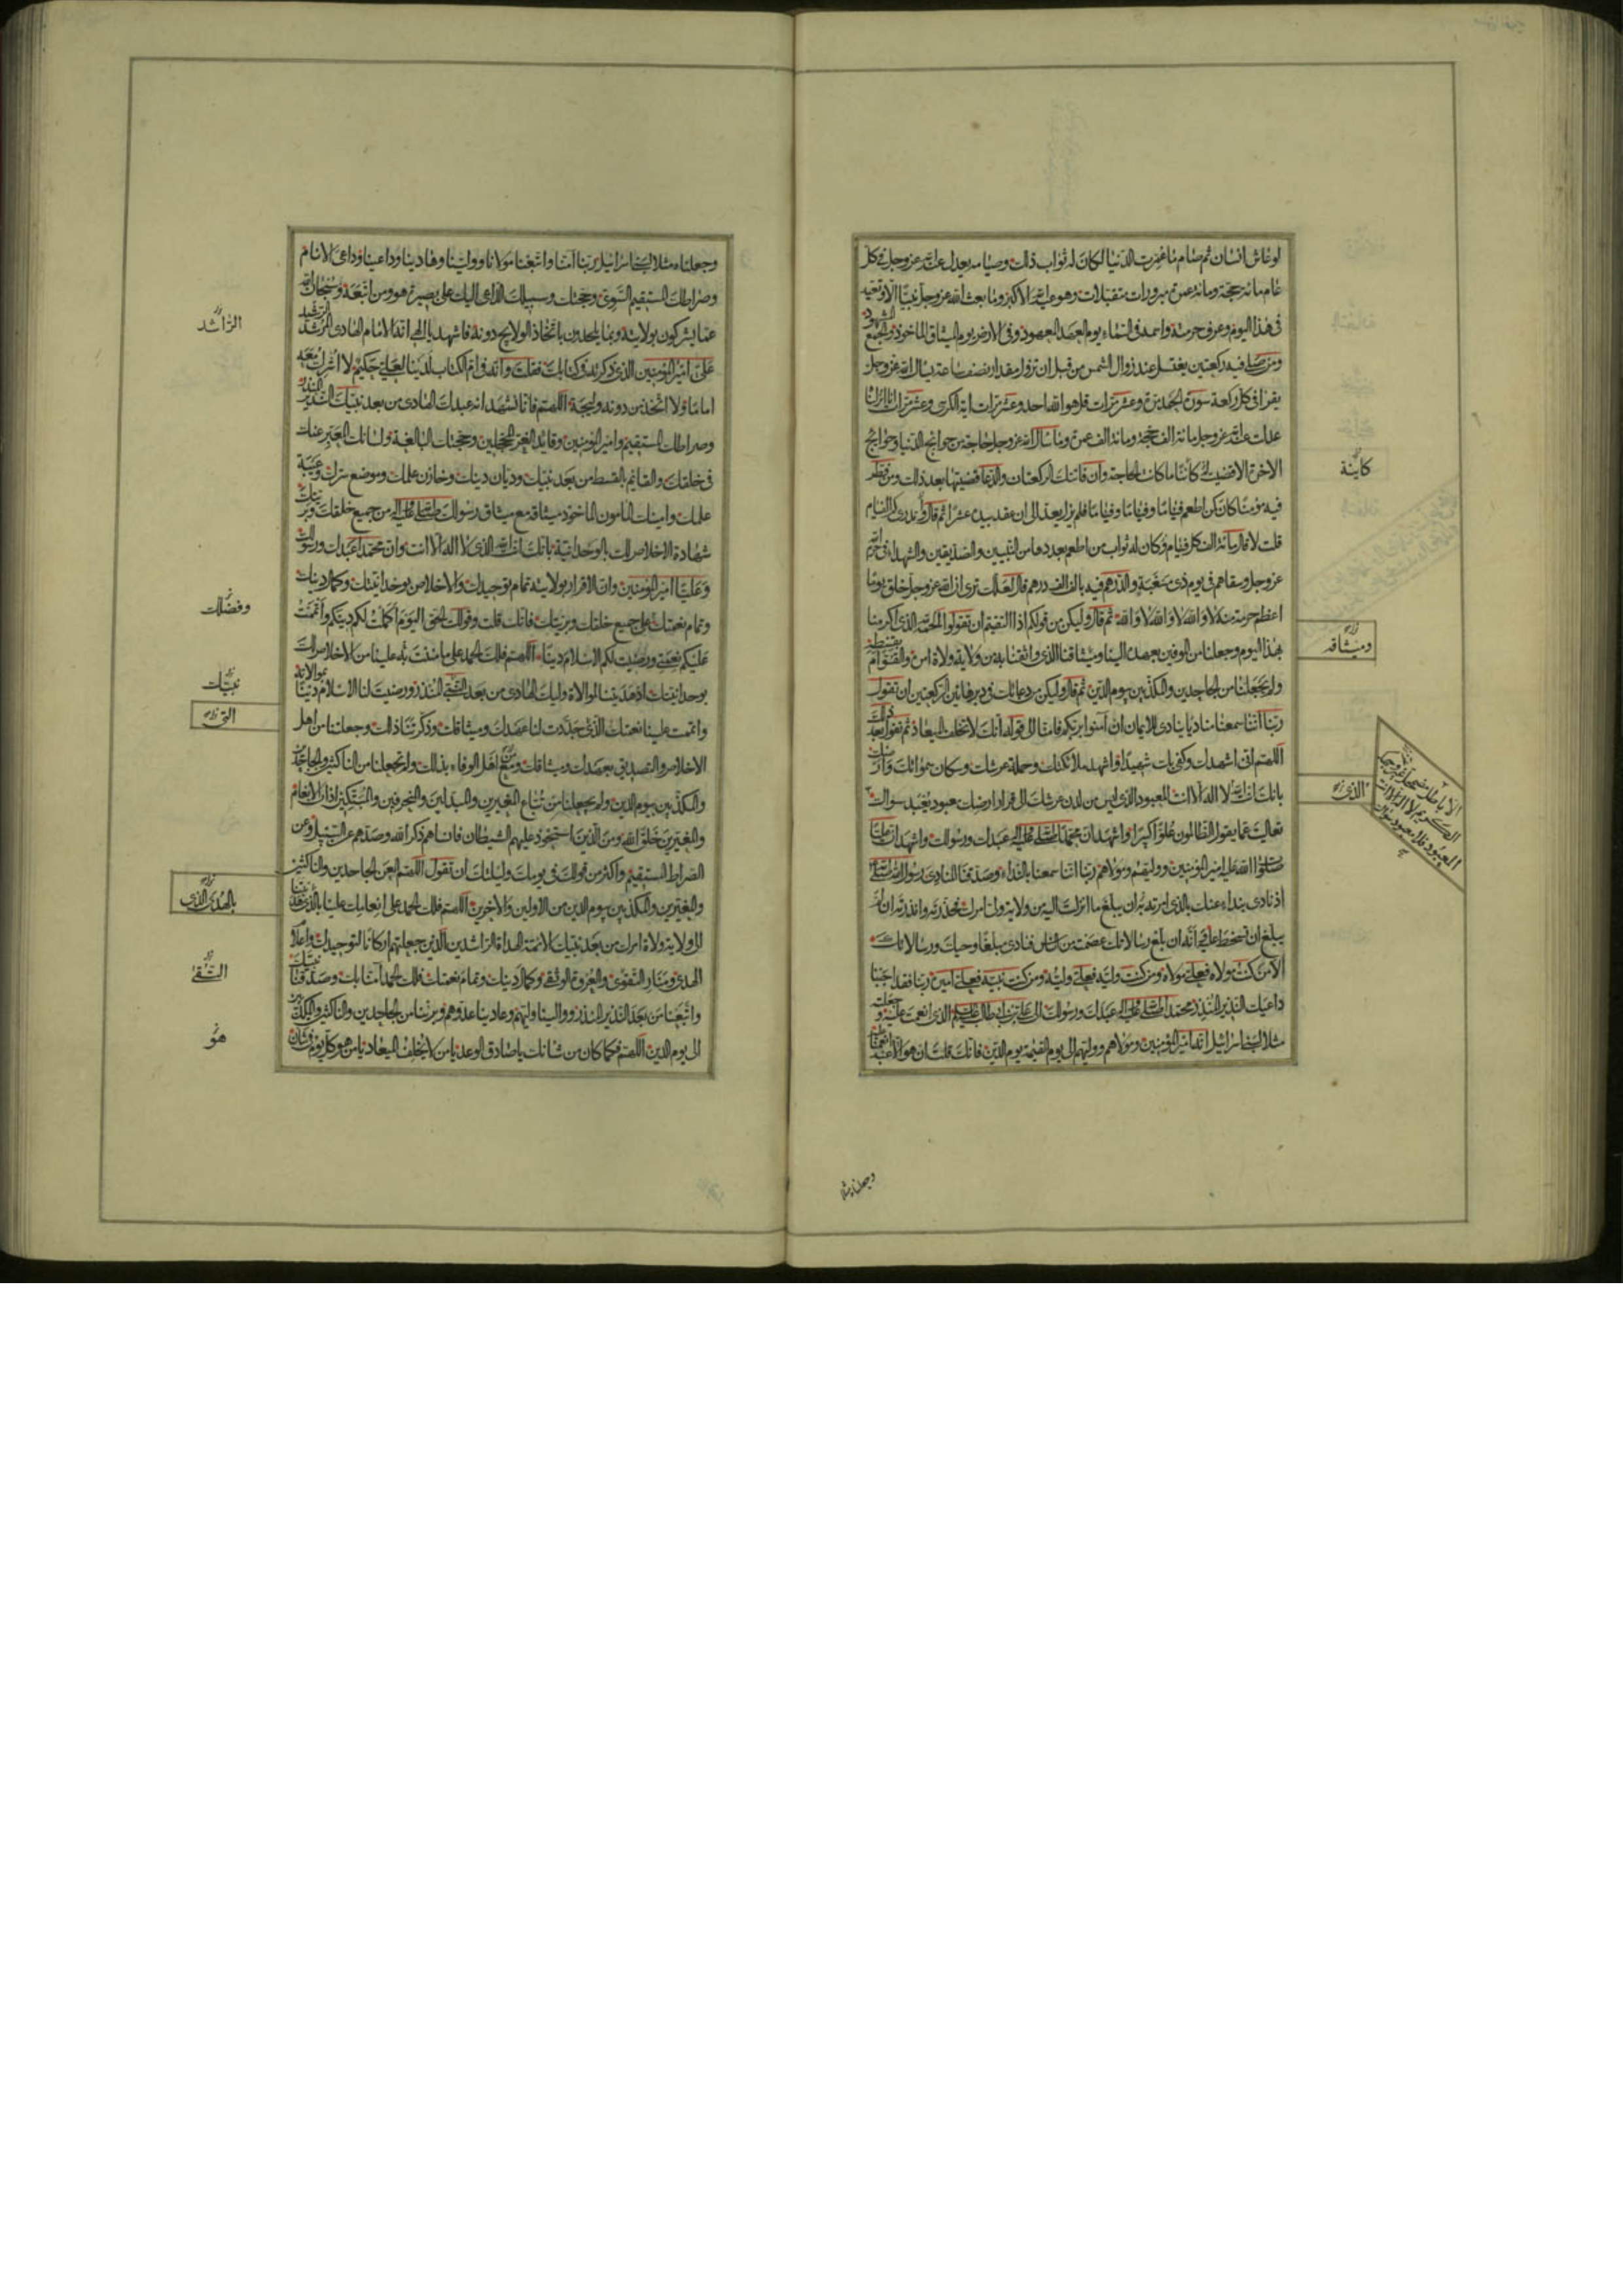 لو عاش انسان ثم صام ما عمرت الدنيا لكان له ثواب ذلك وصيامه يعدل عند الله عز وجل في كل
عام مائة حجة ومائة عمرة مبرورات متقبلات وهو عيد الله الاكبر وما بعث الله عز وجل نبيا الا وتعيد
في هذا اليوم وعرف حرمته واسمه في السماء يوم العهد المعهود وفي الارض يوم الميثاق الماخوذ والجمع المشهود
ومن صلى فيه ركعتين يغتسل عند زوال الشمس من قبل ان تزول مقدار نصف ساعة يسال الله عز وجل
يقرا في كل ركعة سورة الحمد مرة وعشر مرات قل هو الله احد وعشر مرات اية الكرسي وعشر مرات انا انزلناه
عدلت عند الله عز وجل مائة الف حجة ومائة الف عمرة وما سال الله عز وجل حاجة من حوائج الدنيا وحوائج
الاخرة الا قضيت له كائنا ما كانت الحاجة وان فاتتك الركعتان والدعا قضيتها بعد ذلك ومن فطر
فيه مؤمنا كان كمن اطعم فئاما وفئاما وفئاما فلم يزل يعد الى ان عقد بيده عشرا ثم قال وتدري كم الفئام
قلت لا قال مائة الف كل فئام وكان له ثواب من اطعم بعددها من النبيين والصديقين والشهداء في حرم الله
عز وجل وسقاهم في يوم ذي مسغبة والدرهم فيه بالف الف درهم قال لعلك ترى ان الله عز وجل خلق يوما
اعظم حرمة منه لا والله لا والله لا والله ثم قال وليكن من قولكم اذا التقيتم ان تقولوا الحمد لله الذي اكرمنا
بهذا اليوم وجعلنا من الموفين بعهده الينا وميثاقنا الذي واثقنا به من ولاية ولاة امره والقوام بقسطه
ولم يجعلنا من الجاحدين والمكذبين بيوم الدين ثم قال وليكن من دعائك في دبر هاتين الركعتين ان تقول
ربنا اننا سمعنا مناديا ينادي للايمان ان آمنوا بربكم فامنا الى قوله انك لا تخلف الميعاد ثم تقول بعد ذلك
اللهم اني اشهدك وكفى بك شهيدا واشهد ملائكتك وحملة عرشك وسكان سمواتك وارضك
بانك انت الله لا اله الا انت المعبود الذي ليس من لدن عرشك الى قرار ارضك معبود يعبد سواك
تعاليت عما يقول الظالمون علوا كبيرا واشهد ان محمدا صلى الله عليه واله عبدك ورسولك واشهد ان عليا
صلوات الله عليه امير المؤمنين ووليهم ومولاهم ربنا اننا سمعنا بالنداء وصدقنا المنادي رسول الله صلى
اذ نادى بنداء عنك بالذي امرته به ان يبلغ ما انزلت اليه من ولاية ولي امرك فحذرته وانذرته ان لم
يبلغ ان تسخط عليه وانه ان بلغ رسالاتك عصمته من الناس فنادى مبلغا وحيك ورسالاتك
الا من كنت مولاه فعلي مولاه ومن كنت وليه فعلي وليه ومن كنت نبيه فعلي اميره ربنا فقد اجبنا
داعيك النذير المنذر محمدا صلى الله عليه واله عبدك ورسولك الى علي بن ابي طالب عليه السلام الذي انعمت عليه وجعلته
مثلا لبني اسرائيل انه امير المؤمنين ومولاهم ووليهم الى يوم القيمة يوم الدين فانك قلت ان هو الا عبد انعمنا عليه
كاينة
وميثاقه
الذي
وجعلناه مثلا
وجعلناه مثلا لبني اسرائيل ربنا آمنا واتبعنا مولانا وولينا وهادينا وداعينا وداعي الانام
وصراطك المستقيم السوي وحجتك وسبيلك الداعي اليك على بصيرة هو ومن اتبعه وسبحان الله
عما يشركون بولايته وبما يلحدون باتخاذ الولايج دونه فاشهد يا الهي انه الامام الهادي المرشد الرشيد
علي امير المؤمنين الذي ذكرته في كتابك فقلت وانه في ام الكتاب لدينا لعلي حكيم لا اشرك معه
اماما ولا اتخذ من دونه وليجة اللهم فانا نشهد انه عبدك الهادي من بعد نبيك النذير المنذر
وصراطك المستقيم وامير المؤمنين وقائد الغر المحجلين وحجتك البالغة ولسانك المعبر عنك
في خلقك والقائم بالقسط من بعد نبيك وديان دينك وخازن علمك وموضع سرك وعيبة
علمك وامينك المامون الماخوذ ميثاقه مع ميثاق رسولك صلى الله عليه واله من جميع خلقك وبريتك
شهادة الاخلاص لك بالوحدانية بانك انت الله الذي لا اله الا انت وان محمدا عبدك ورسولك
وعليا امير المؤمنين وان الاقرار بولايته تمام توحيدك والاخلاص بوحدانيتك وكمال دينك
وتمام نعمتك على جميع خلقك وبريتك فانك قلت وقولك الحق اليوم اكملت لكم دينكم واتممت
عليكم نعمتي ورضيت لكم الاسلام دينا اللهم فلك الحمد على ما مننت به علينا من الاخلاص لك
بوحدانيتك اذ هديتنا لموالاة وليك الهادي من بعد النبي المنذر ورضيت لنا الاسلام دينا بموالاته
واتممت علينا نعمتك الذي جددت لنا عهدك وميثاقك وذكرتنا ذلك وجعلتنا من اهل
الاخلاص والتصديق بعهدك وميثاقك ومن اهل الوفاء بذلك ولم تجعلنا من الناكثين والجاحدين
والمكذبين بيوم الدين ولم يجعلنا من تباع المغيرين والمبدلين والمحرفين والمبتكين اذان الانعام
والمغيرين خلق الله ومن الذين استحوذ عليهم الشيطان فانساهم ذكر الله وصدهم عن السبيل وعن
الصراط المستقيم واكثر من قولك في يومك وليلتك ان تقول اللهم العن الجاحدين والناكثين
والمغيرين والمكذبين بيوم الدين من الاولين والاخرين اللهم فلك الحمد على انعامك علينا بالذي هديتنا
الى ولاية ولاة امرك من بعد نبيك الائمة الهداة الراشدين الذين جعلتهم اركانا لتوحيدك واعلام
الهدى ومنار التقوى والعروة الوثقى وكمال دينك وتمام نعمتك فلك الحمد آمنا بك وصدقنا نبيك
واتبعنا من بعد النذير المنذر ووالينا وليهم وعادينا عدوهم وبرئنا من الجاحدين والناكثين والمكذبين
الى يوم الدين اللهم فكما كان من شانك يا صادق الوعد يا من لا يخلف الميعاد يا من هو كل يوم في شان
الراشد
وفضلك
نبيك
التي
بالهدى الذي
التقى
هو